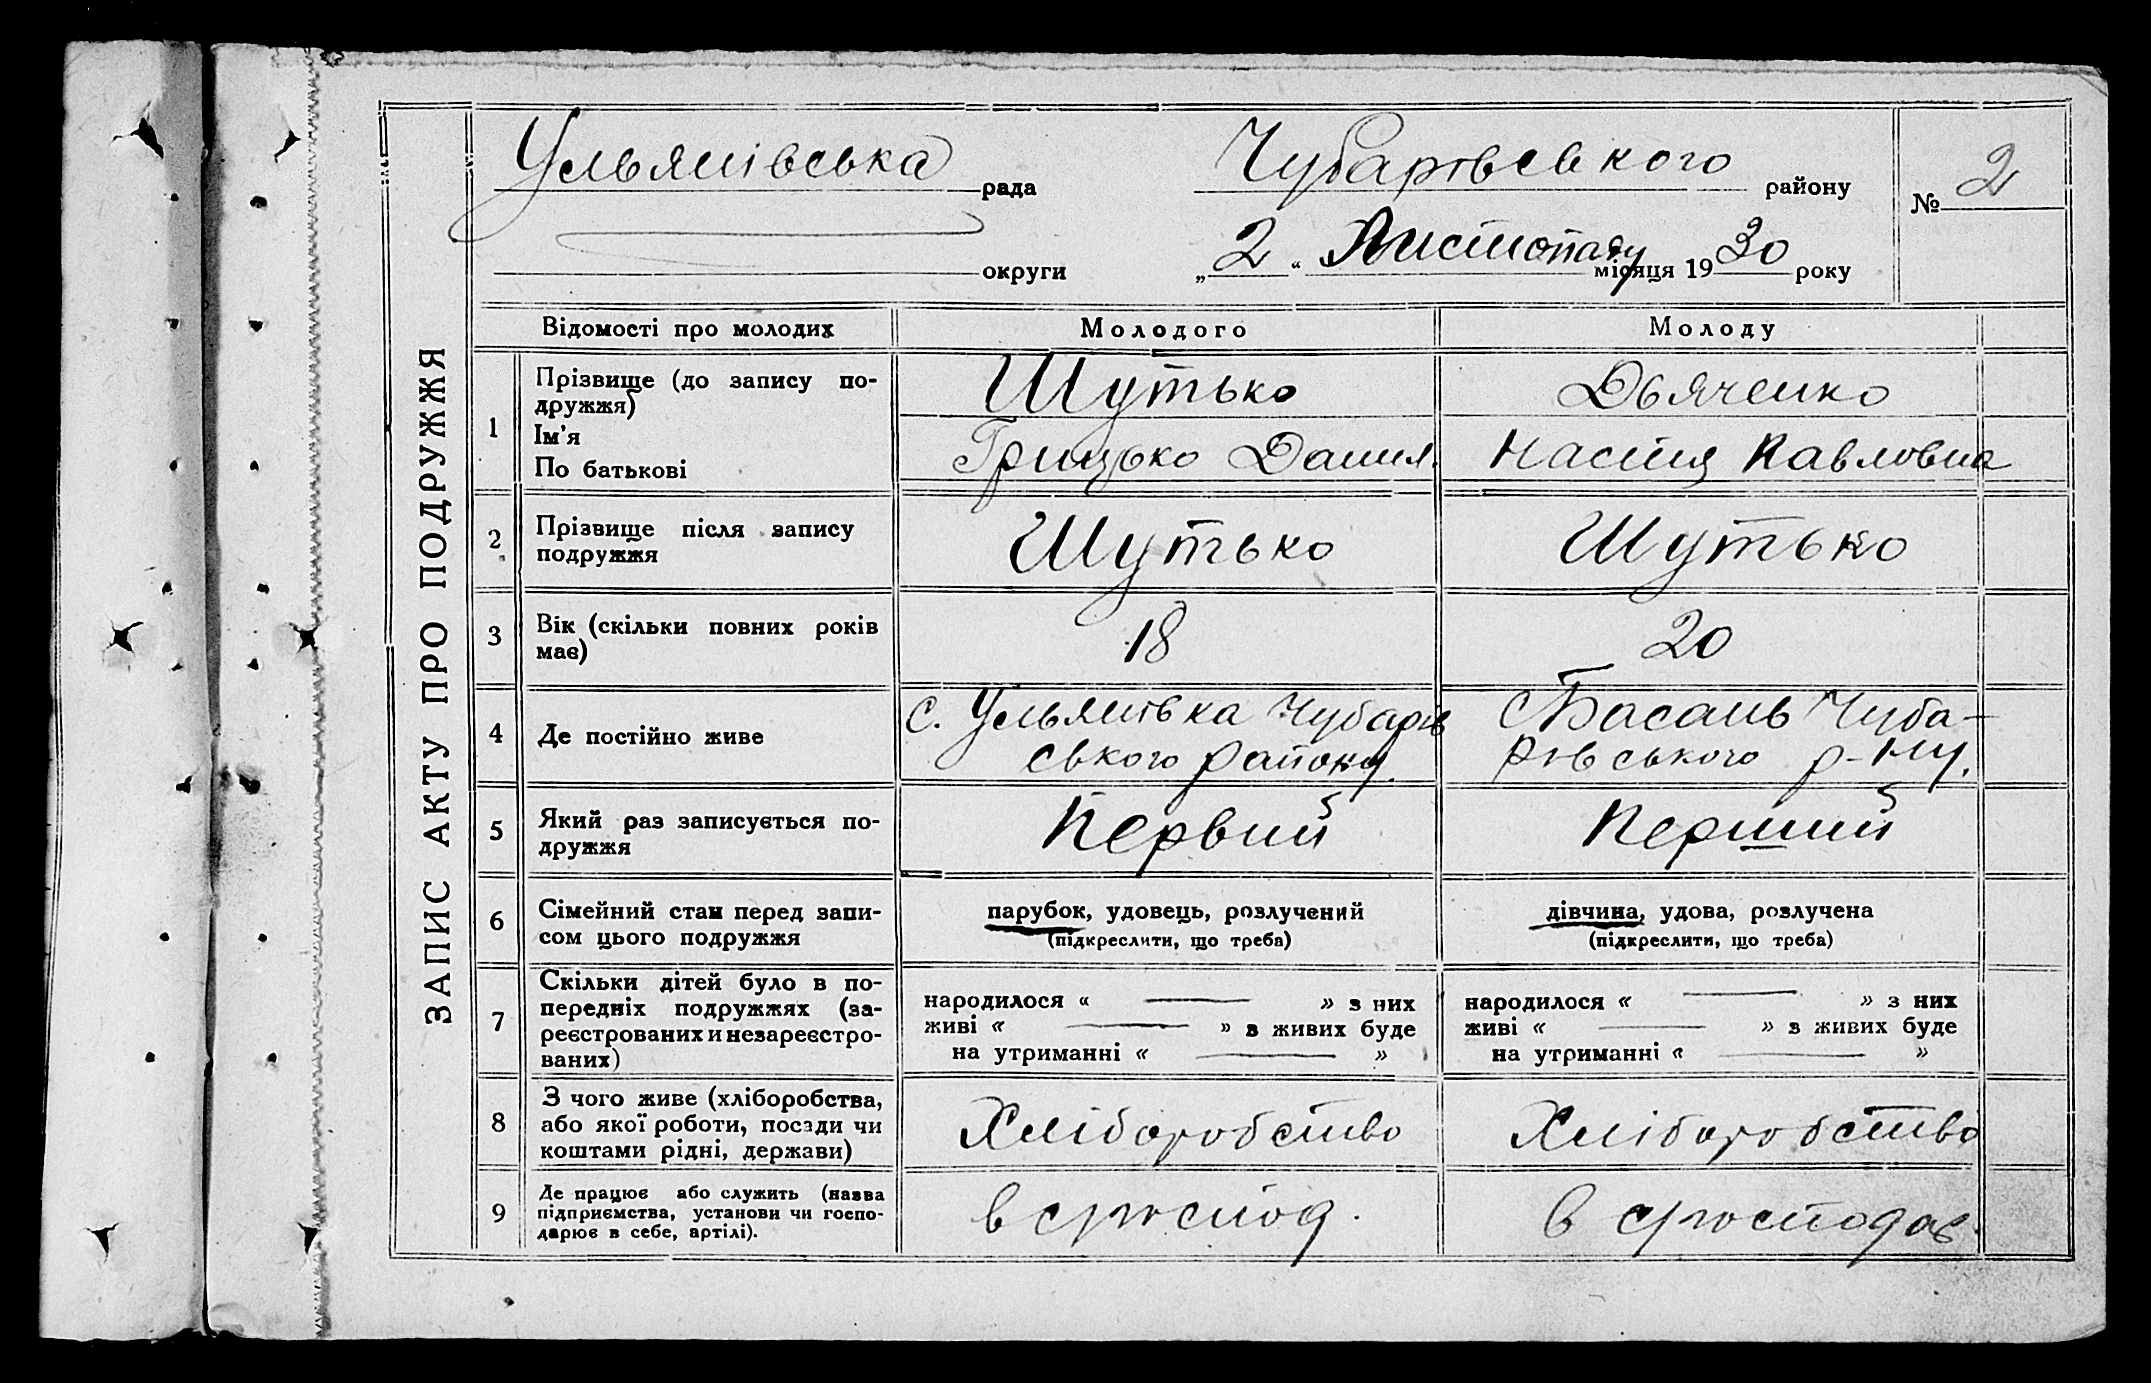 ЗАПИС АКТУ ПРО ПОДРУЖЖЯ
Ульянівська рада Чубарівського району № 2
округи „ 2 “ Листопаду місяця 1930 року
Відомості про молодих Молодого Молоду
1 Прізвище (до запису по-
дружжя) Шутько Дьяченко
Ім'я
По батькові Грицько Данил. Настя Павловна
2 Прізвище після запису
подружжя Шутько Шутько
3 Вік (скільки повних років
має) 18 20
4 Де постійно живе с. Ульянівка Чубарів
ського району. с Басань Чуба-
рівського р-ну.
5 Який раз записується по-
дружжя Первий Перший
6 Сімейний стан перед запи-
сом цього подружжя парубок, удовець, розлучений
(підкреслити, що треба) дівчина, удова, розлучена
(підкреслити, що треба)
7 Скільки дітей було в по-
передніх подружжях (за-
реєстрованих и незареєстро-
ваних) народилося « — » з них
живі « — » з живих буде
на утриманні « — »
народилося « — » з них
живі « — » з живих буде
на утриманні « — »
8 З чого живе (хліборобства,
або якої роботи, посади чи
коштами рідні, держави) Хліборобство Хліборобство
9 Де працює або служить (назва
підприємства, установи чи госпо-
дарює в себе, артілі). в
в